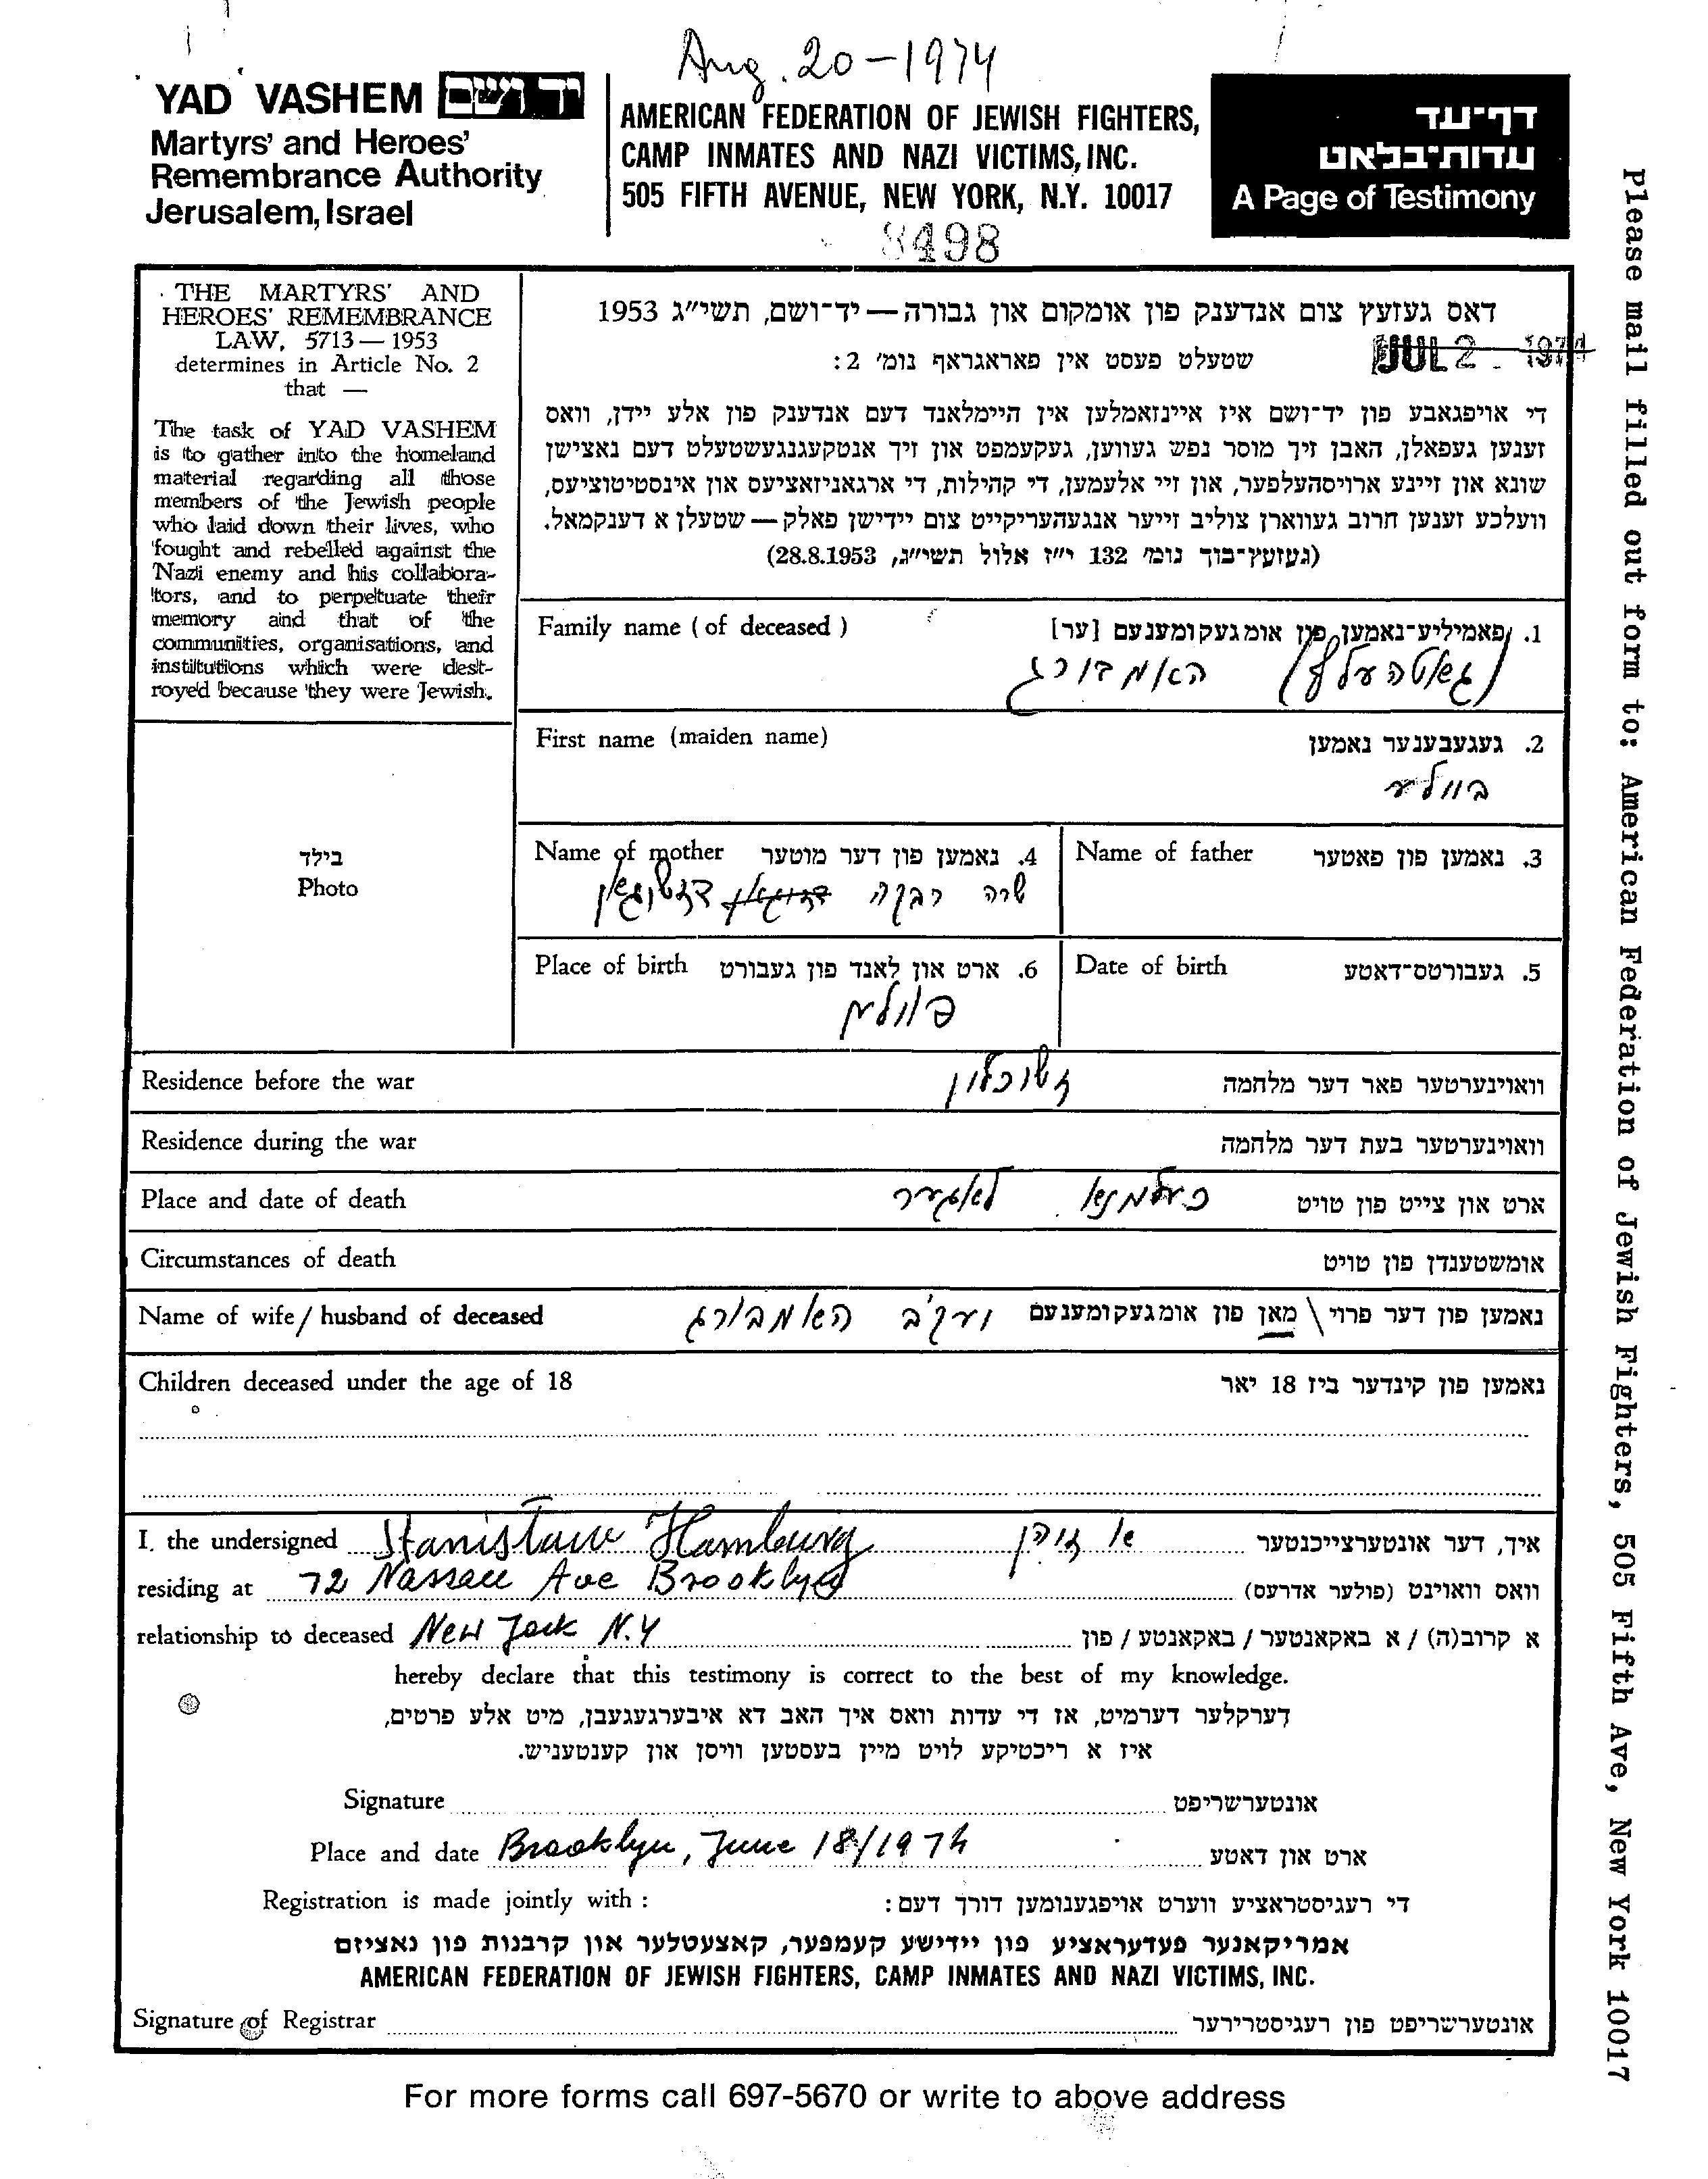 Aug. 20-1974
YAD VASHEM יד ושם
Martyrs' and Heroes'
Remembrance Authority
Jerusalem, Israel
AMERICAN FEDERATION OF JEWISH FIGHTERS,
CAMP INMATES AND NAZI VICTIMS, INC.
505 FIFTH AVENUE, NEW YORK, N.Y. 10017
8498
דף-עד
עדות-בלאט
A Page of Testimony
THE MARTYRS' AND
HEROES' REMEMBRANCE
LAW, 5713 — 1953
determines in Article No. 2
that —
The task of YAD VASHEM
is to gather into the homeland
material regarding all those
members of the Jewish people
who laid down their lives, who
fought and rebelled against the
Nazi enemy and his collabora-
tors, and to perpetuate their
memory and that of the
communities, organisations, and
institutions which were dest-
royed because they were Jewish.
דאס געזעץ צום אנדענק פון אומקום און גבורה — יד-ושם, תשי״ג 1953
JUL 2 - 1974
שטעלט פעסט אין פאראגראף נומ׳ 2:
די אויפגאבע פון יד-ושם איז איינזאמלען אין היימלאנד דעם אנדענק פון אלע יידן, וואס
זענען געפאלן, האבן זיך מוסר נפש געווען, געקעמפט און זיך אנטקעגנגעשטעלט דעם נאצישן
שונא און זיינע ארויסהעלפער, און זיי אלעמען, די קהילות, די ארגאניזאציעס און אינסטיטוציעס,
וועלכע זענען חרוב געווארן צוליב זייער אנגעהעריקייט צום יידישן פאלק — שטעלן א דענקמאל.
(געזעץ-בוך נומ׳ 132 י״ז אלול תשי״ג, 28.8.1953)
Family name (of deceased) 1. פאמיליע-נאמען פון אומגעקומענעם [ער]
(גאטהעלף) האמבורג
First name (maiden name) 2. געגעבענער נאמען
ביילע
בילד
Photo
Name of father 3. נאמען פון פאטער
Name of mother 4. נאמען פון דער מוטער
שרה רבקה
Date of birth 5. געבורטס-דאטע
Place of birth 6. ארט און לאנד פון געבורט
פוילען
Residence before the war וואוינערטער פאר דער מלחמה
Residence during the war וואוינערטער בעת דער מלחמה
Place and date of death ארט און צייט פון טויט
כעלמנא לאגער
Circumstances of death אומשטענדן פון טויט
Name of wife / husband of deceased נאמען פון דער פרוי \ מאן פון אומגעקומענעם
יעקב האמבורג
Children deceased under the age of 18 נאמען פון קינדער ביז 18 יאר
I, the undersigned Stanisław Hamburg א זוהן איך, דער אונטערצייכנטער
residing at 72 Nassau Ave Brooklyn וואס וואוינט (פולער אדרעס)
relationship to deceased New York N.Y א קרוב(ה) / א באקאנטער / באקאנטע / פון
hereby declare that this testimony is correct to the best of my knowledge.
דערקלער דערמיט, אז די עדות וואס איך האב דא איבערגעגעבן, מיט אלע פרטים,
איז א ריכטיקע לויט מיין בעסטען וויסן און קענטעניש.
Signature אונטערשריפט
Place and date Brooklyn, June 18/1974 ארט און דאטע
Registration is made jointly with : די רעגיסטראציע ווערט אויפגענומען דורך דעם:
אמריקאנער פעדעראציע פון יידישע קעמפער, קאצעטלער און קרבנות פון נאציזם
AMERICAN FEDERATION OF JEWISH FIGHTERS, CAMP INMATES AND NAZI VICTIMS, INC.
Signature of Registrar אונטערשריפט פון רעגיסטרירער
For more forms call 697-5670 or write to above address
Please mail filled out form to: American Federation of Jewish Fighters, 505 Fifth Ave, New York 10017